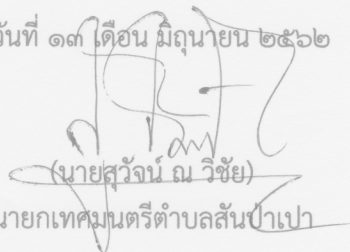 วันที่ ๑๓ เดือน มิถุนายน ๒๕๖๒
(นายสุวัจน์ ณ วิชัย)
นายกเทศมนตรีตำบลสันป่าเปา